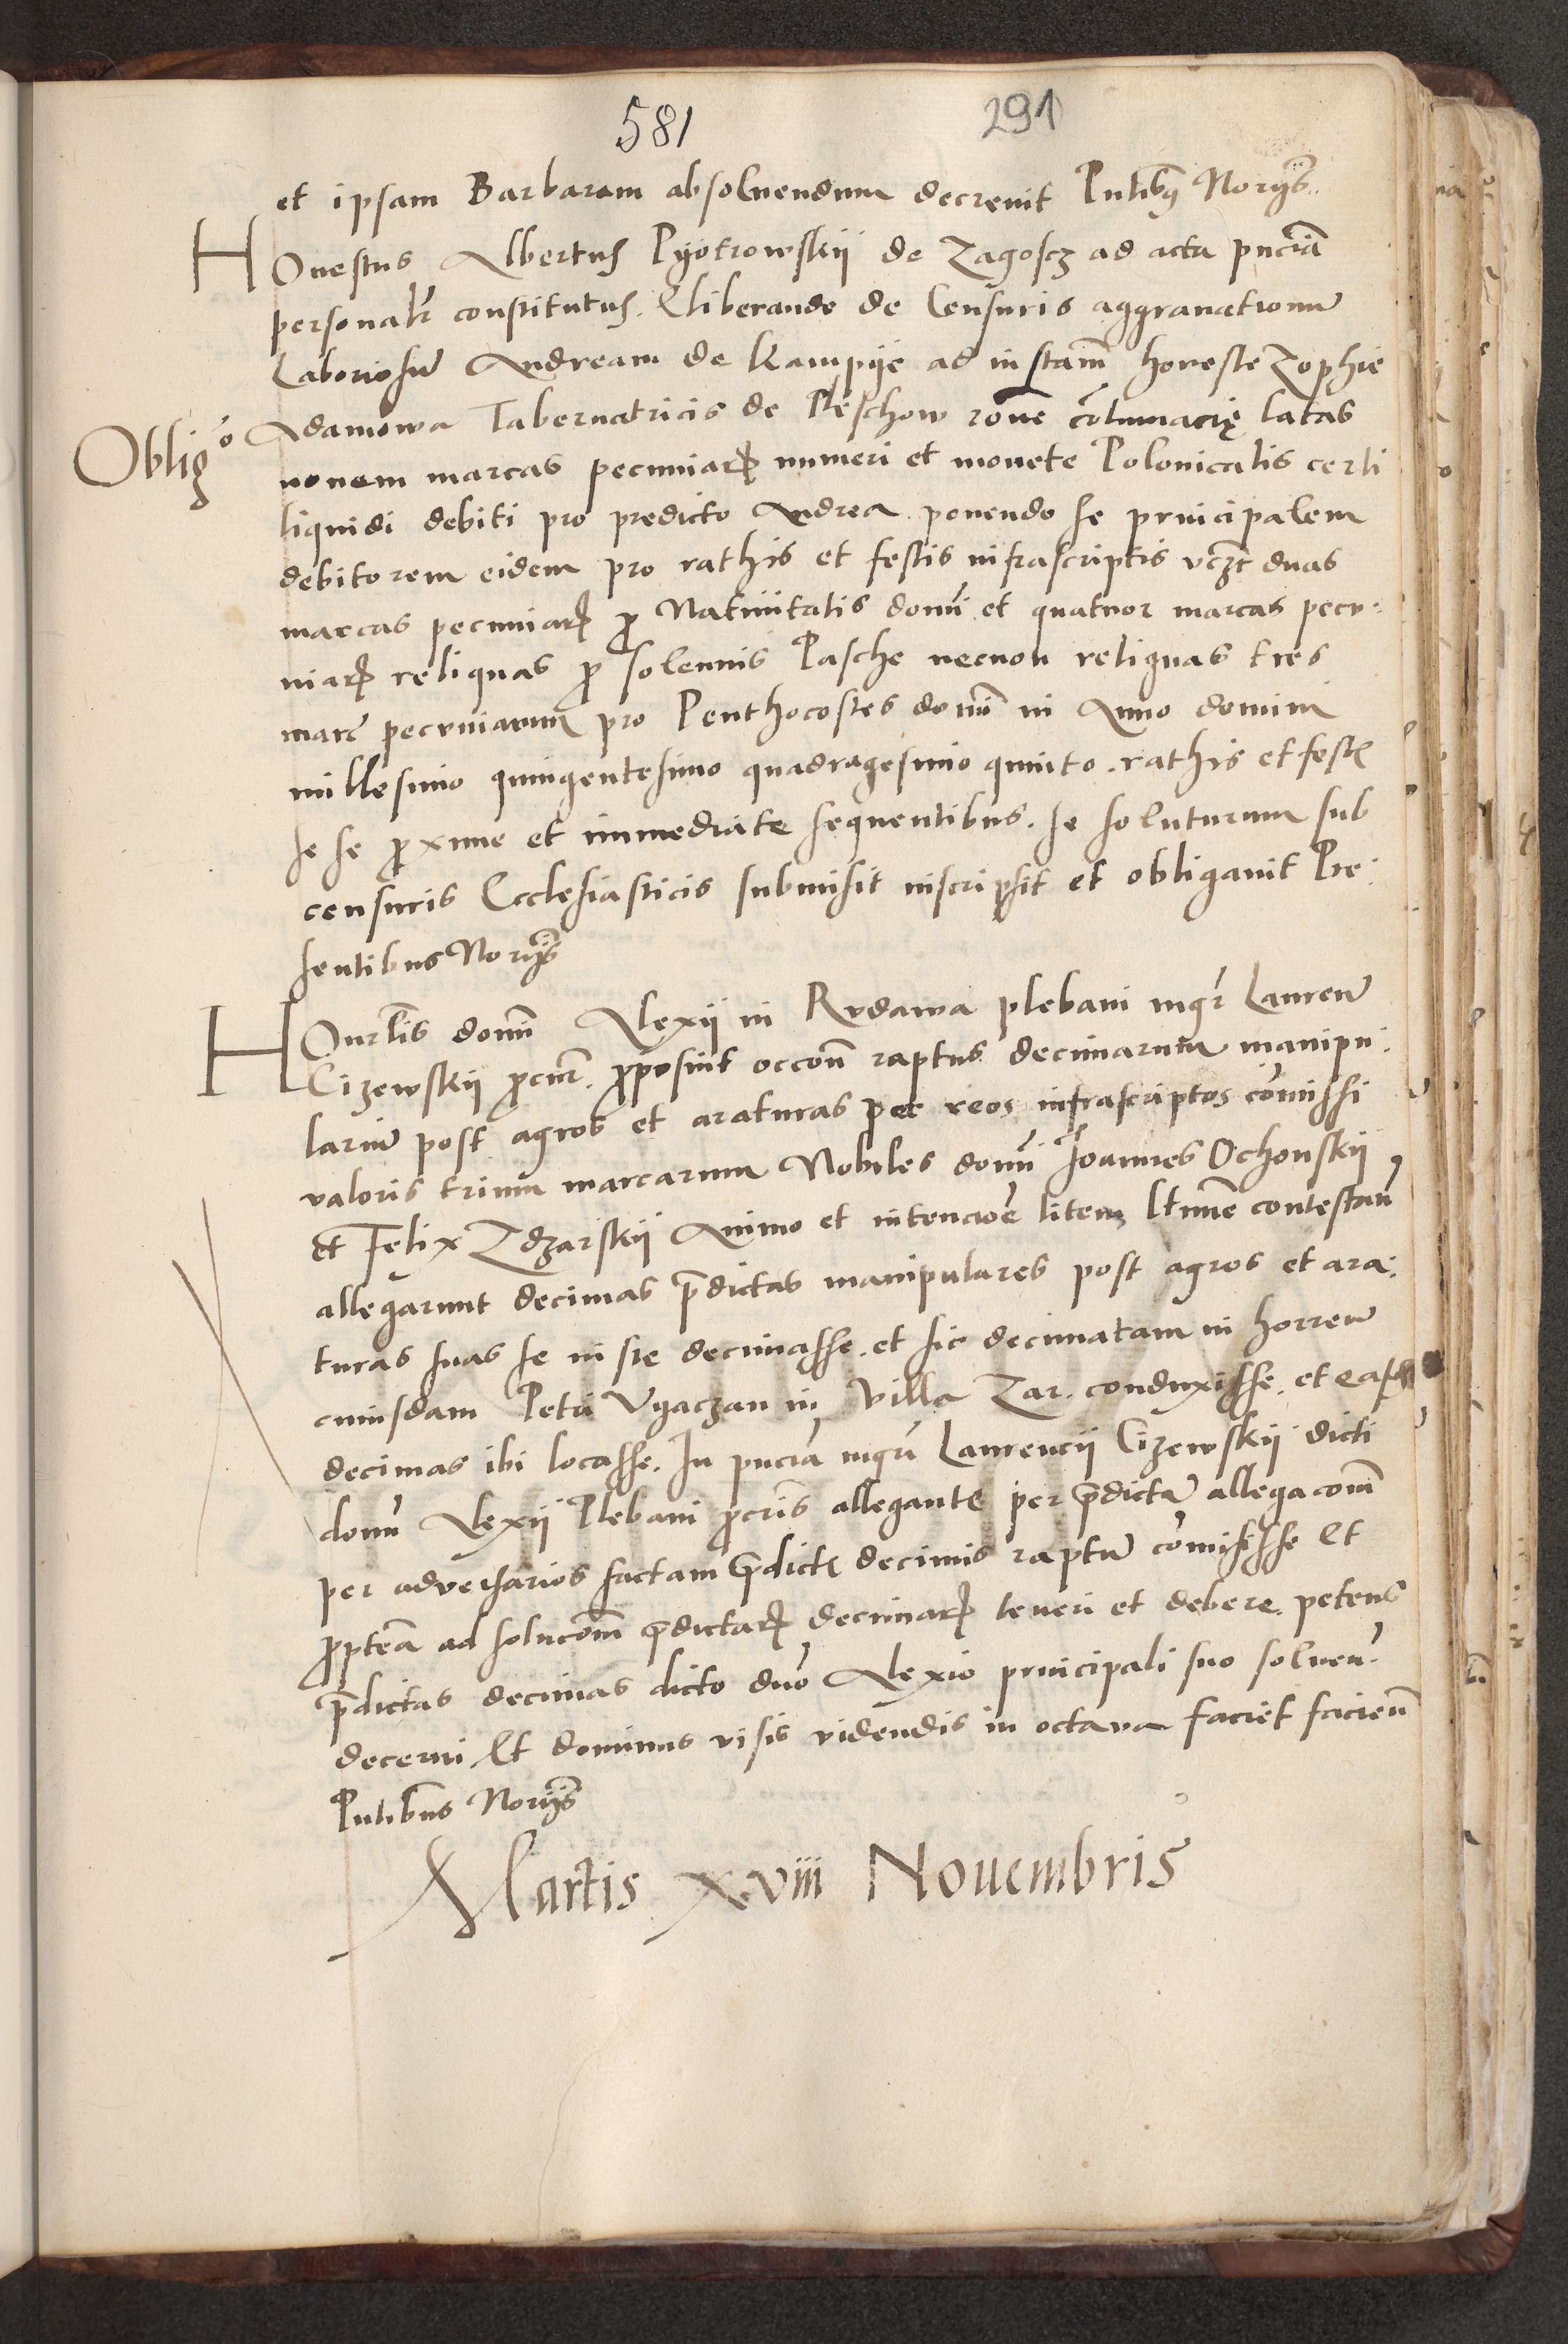 581
291
et ipsam Barbaram absoluendum decreuit Pntibus Norijs
Honestus Albertus Pyotrowskij de Zagoscz ad acta pnciā
personalr constitutus. Eliberando de Censuris aggrauationum
Laboriosum Andream de Kampije ad instam honeste Zophie
Obligo
Adamowa Tabernatricis de Pleschow rone cōtumacię latas
nouem marcas pecuniarꝝ numeri et monete Polonicalis certi
liquidi debiti pro predicto Andrea ponendo se principalem
debitorem eidem pro rathis et festis infrascriptis vczt duas
marcas pecuniarꝝ ꝓ Natiuitatis domi et quatuor marcas pecu-
niarꝝ reliquas ꝓ solennis Pasche necnon reliquas tres
marc pecuniarum pro Penthocostes domi in Anno domini
millesimo quingentesimo quadragesimo quinto. rathis et fest
se se ꝓxime et immediate sequentibus. se soluturum sub
censuris Ecclesiasticis submisit inscripsit et obligauit Pre-
sentibus Norijs
Honrlis domi Alexij in Rudawa plebani mgr Lauren
Cizewskij ꝓcur. ꝓposuit occon raptus decimarum manipu-
larium post agros et araturas per reos infrascriptos cōmissi
valoris trium marcarum Nobiles domi Joannes Ochonskij
et Felix Zdzarskij Animo et intencioe litem ltime contestan
allegarunt decimas p̄dictas manipulares post agros et ara-
turas suas se iuste decimasse. et sic decimatam in horreum
cuiusdam Petri Vgaczan in Villa Zar. conduxisse. et easdem
decimas ibi locasse. In pncia mgri Laurencij Cizewskij dicti
domi Alexij Plebani ꝓcris allegante per p̄dictam allegacom
per aduersarios factam p̄dictis decimis raptum cōmisisse Et
ꝓpterea ad solucom p̄dictarꝝ decimarꝝ teneri et debere. petens
p̄dictas decimas dicto dno Alexio principali suo soluen.
decerni. Et dominus visis videndis in octaua faciet facien
Pntibus Norijs
Martis xviii Nouembris